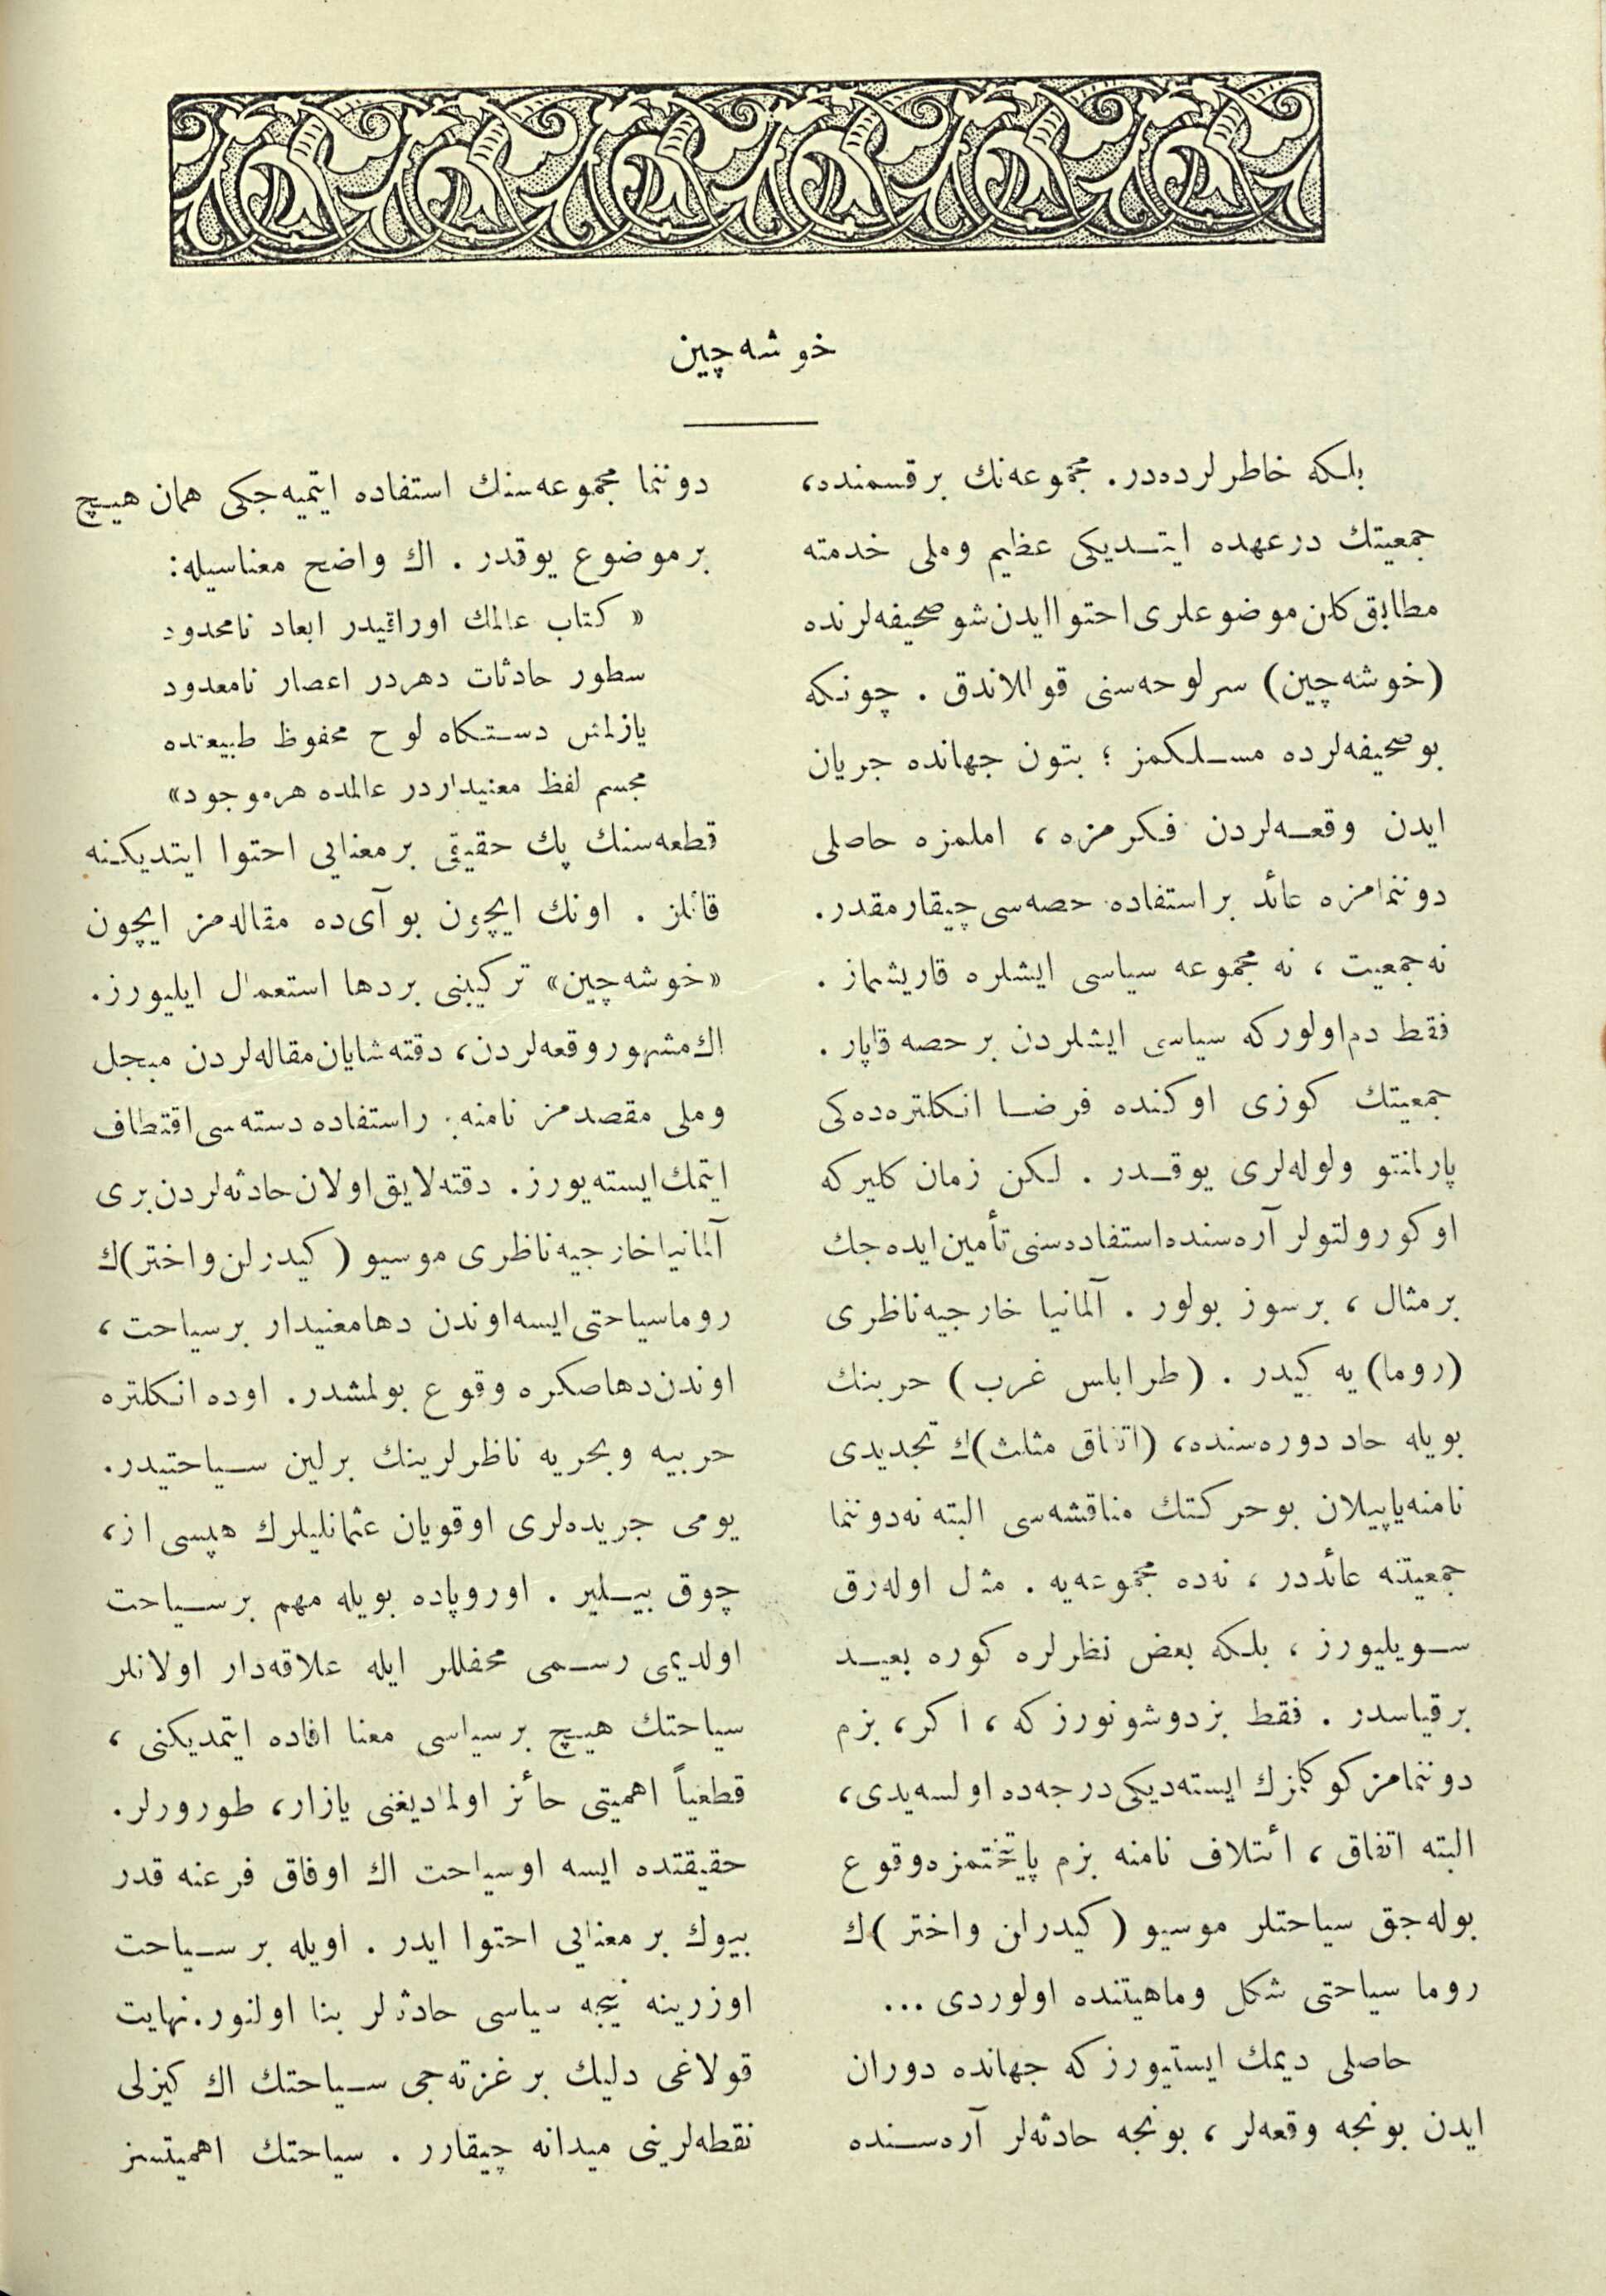 خوشه‌چین
بلكه خاطرلرده‌در. مجموعه‌نك بر قسمنده،
جمعیتك درعهده ایتدیكی عظیم وملی خدمته
مطابق كلن موضوعلری احتوا ایدن شو صحیفه‌لرنده
(خوشه‌چین) سرلوحه‌سنی قوللاندق . چونكه
بو صحیفه‌لرده مسلكمز ؛ بتون جهانده جریان
ایدن وقعه‌لردن فكرمزه، املمزه حاصلی
دوننمامزه عائد بر استفاده حصه‌سی چیقارمقدر.
نه جمعیت ، نه مجموعه سیاسی ایشلره قاریشماز .
فقط دم اولوركه سیاسی ایشلردن بر حصه قاپار .
جمعیتك كوزی اوكنده فرضا انكلتره‌ده‌كی
پارلمنتو ولوله‌لری یوقدر . لكن زمان كلیركه
او كورولتولر آره‌سنده استفاده‌سنی تأمین ایده‌جك
بر مثال ، بر سوز بولور . آلمانیا خارجیه ناظری
(روما) یه كیدر . (طرابلس غرب) حربنك
بویله حاد دوره‌سنده، (اتفاق مثلث)ك تجدیدی
نامنه یاپیلان بو حركتك مناقشه‌سی البته نه دوننما
جمعیتنه عائددر ، نه‌ده مجموعه‌یه . مثل اوله‌رق
سویلیورز ، بلكه بعض نظرلره كوره بعید
بر قیاسدر . فقط بز دوشونورز كه ، اكر ، بزم
دوننمامز كوكلمزك ایسته‌دیكی درجه‌ده اولسه‌یدی،
البته اتفاق ، ائتلاف نامنه بزم پایتختمزه وقوع
بوله‌جق سیاحتلر موسیو ( كیدرلن واختر )ك
روما سیاحتی شكل وماهیتنده اولوردی ...
حاصلی دیمك ایستیورز كه جهانده دوران
ایدن بونجه وقعه‌لر ، بونجه حادثه‌لر آره‌سنده
دوننما مجموعه‌سنك استفاده ایتمیه‌جكی همان هیچ
بر موضوع یوقدر . اك واضح معناسیله:
« كتاب عالمك اوراقیدر ابعاد نامحدود
سطور حادثات دهردر اعصار نامعدود
یازلمش دستكاه لوح محفوظ طبیعتده
مجسم لفظ معنیداردر عالمده هرموجود»
قطعه‌سنك پك حقیقی بر معنایی احتوا ایتدیكنه
قائلز . اونك ایچون بو آی‌ده مقاله‌مز ایچون
«خوشه‌چین» تركیبنی بردها استعمال ایلیورز.
اك مشهور وقعه‌لردن، دقته شایان مقاله‌لردن مبجل
وملی مقصدمز نامنه براستفاده دسته‌سی اقتطاف
ایتمك ایسته‌یورز. دقته لایق اولان حادثه‌لردن بری
آلمانیا خارجیه ناظری موسیو ( كیدرلن واختر)ك
روما سیاحتی ایسه اوندن دها معنیدار بر سیاحت ،
اوندن دها صكره وقوع بولمشدر. اوده انكلتره
حربیه وبحریه ناظرلرینك برلین سیاحتیدر.
یومی جریده‌لری اوقویان عثمانلیلرك هپسی از،
چوق بیلیر . اوروپاده بویله مهم بر سیاحت
اولدیمی رسمی محفللر ایله علاقه‌دار اولانلر
سیاحتك هیچ بر سیاسی معنا افاده ایتمدیكنی ،
قطعیاً اهمیتی حائز اولمادیغنی یازار، طورورلر.
حقیقتده ایسه او سیاحت اك اوفاق فرعنه قدر
بیوك بر معنایی احتوا ایدر . اویله بر سیاحت
اوزرینه نیجه سیاسی حادثه‌لر بنا اولنور. نهایت
قولاغی دلیك بر غزته‌جی سیاحتك اك كیزلی
نقطه‌لرینی میدانه چیقارر . سیاحتك اهمیتسز